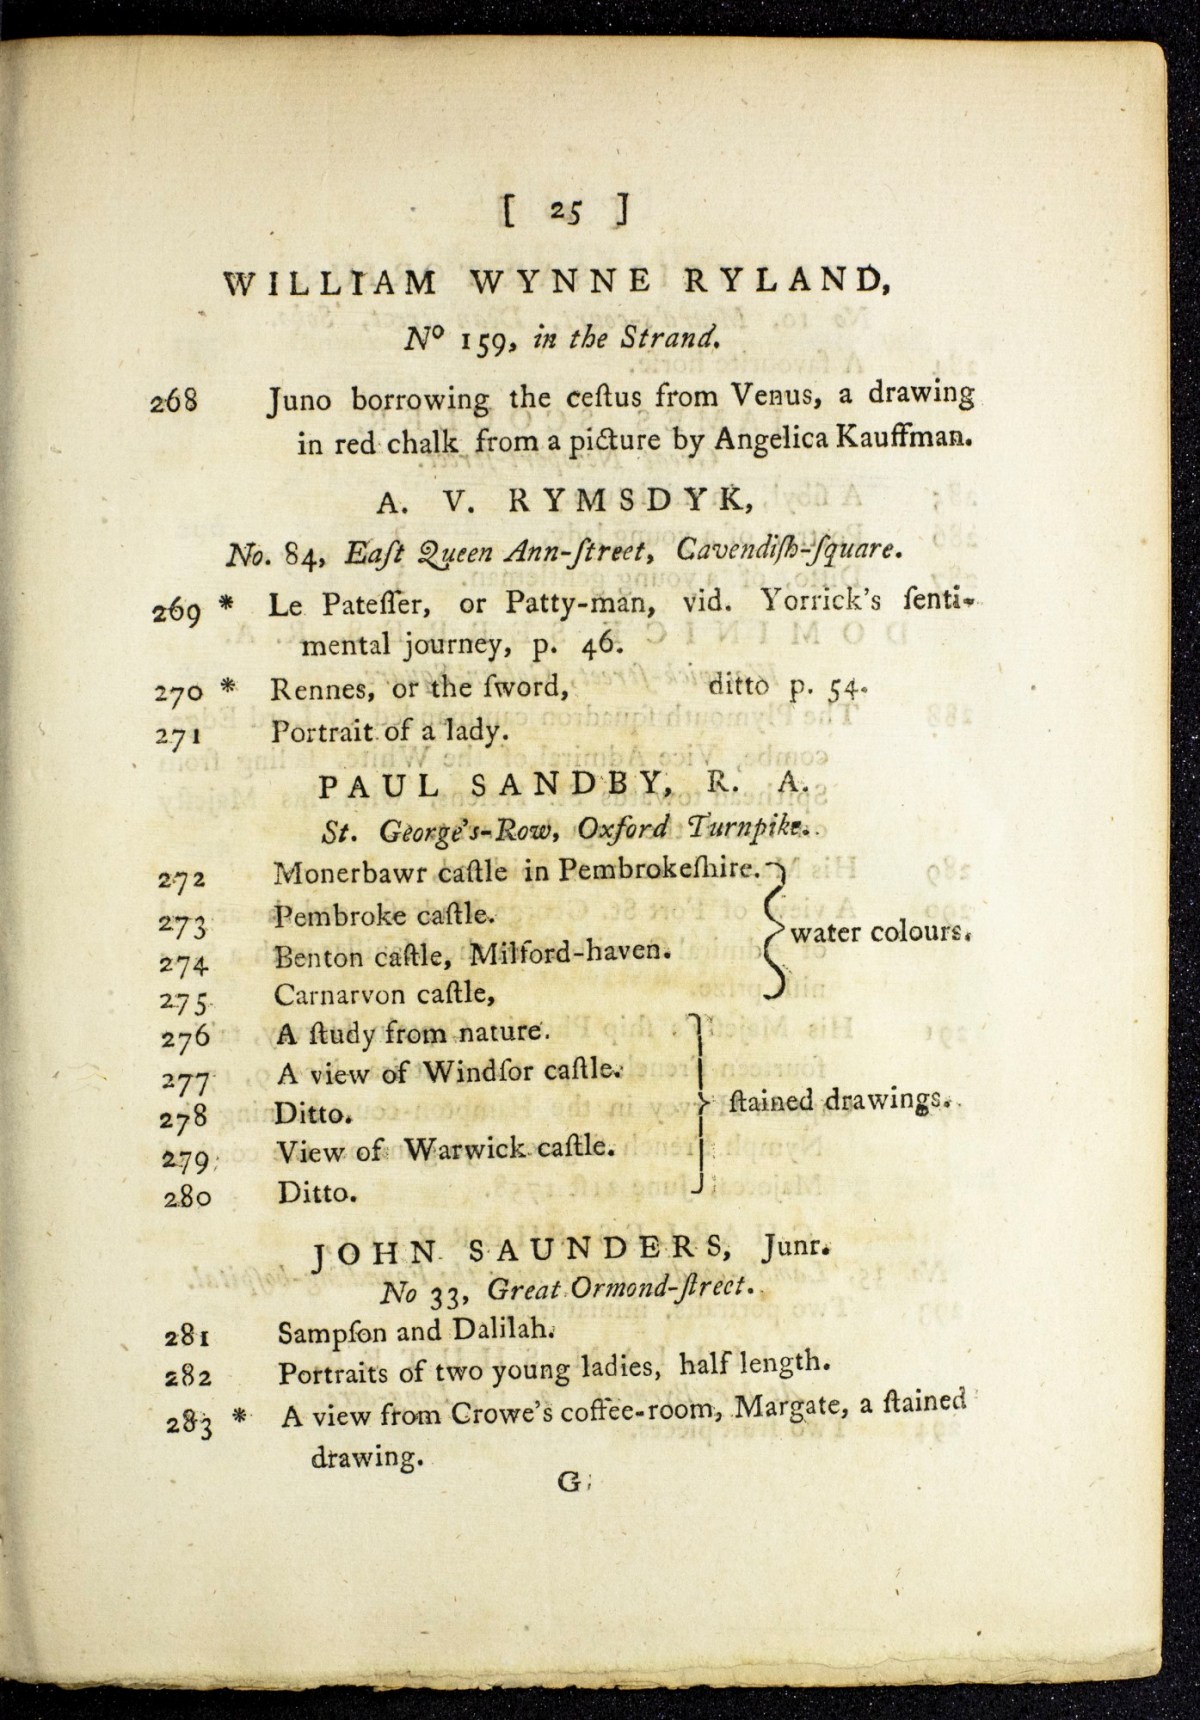 [ 25 ]
WILLIAM WYNNE RYLAND,
Nº 159, in the Strand.
268 Juno borrowing the ceſtus from Venus, a drawing
in red chalk from a picture by Angelica Kauffman.
A. V. RYMSDYK,
No. 84, Eaſt Queen Ann-ſtreet, Cavendiſh-ſquare.
269 * Le Pateſſer, or Patty-man, vid. Yorrick's ſenti-
mental journey, p. 46.
270 * Rennes, or the ſword, ditto p. 54.
271 Portrait of a lady.
PAUL SANDBY, R. A.
St. George's-Row, Oxford Turnpike.
272 Monerbawr caſtle in Pembrokeſhire.
273 Pembroke caſtle.
water colours.
274 Benton caſtle, Milford-haven.
275 Carnarvon caſtle,
276 A ſtudy from nature.
277 A view of Windſor caſtle.
278 Ditto.
ſtained drawings.
279 View of Warwick caſtle.
280 Ditto.
JOHN SAUNDERS, Junr.
No 33, Great Ormond-ſtreet.
281 Sampſon and Dalilah.
282 Portraits of two young ladies, half length.
283 * A view from Crowe's coffee-room, Margate, a ſtained
drawing.
G